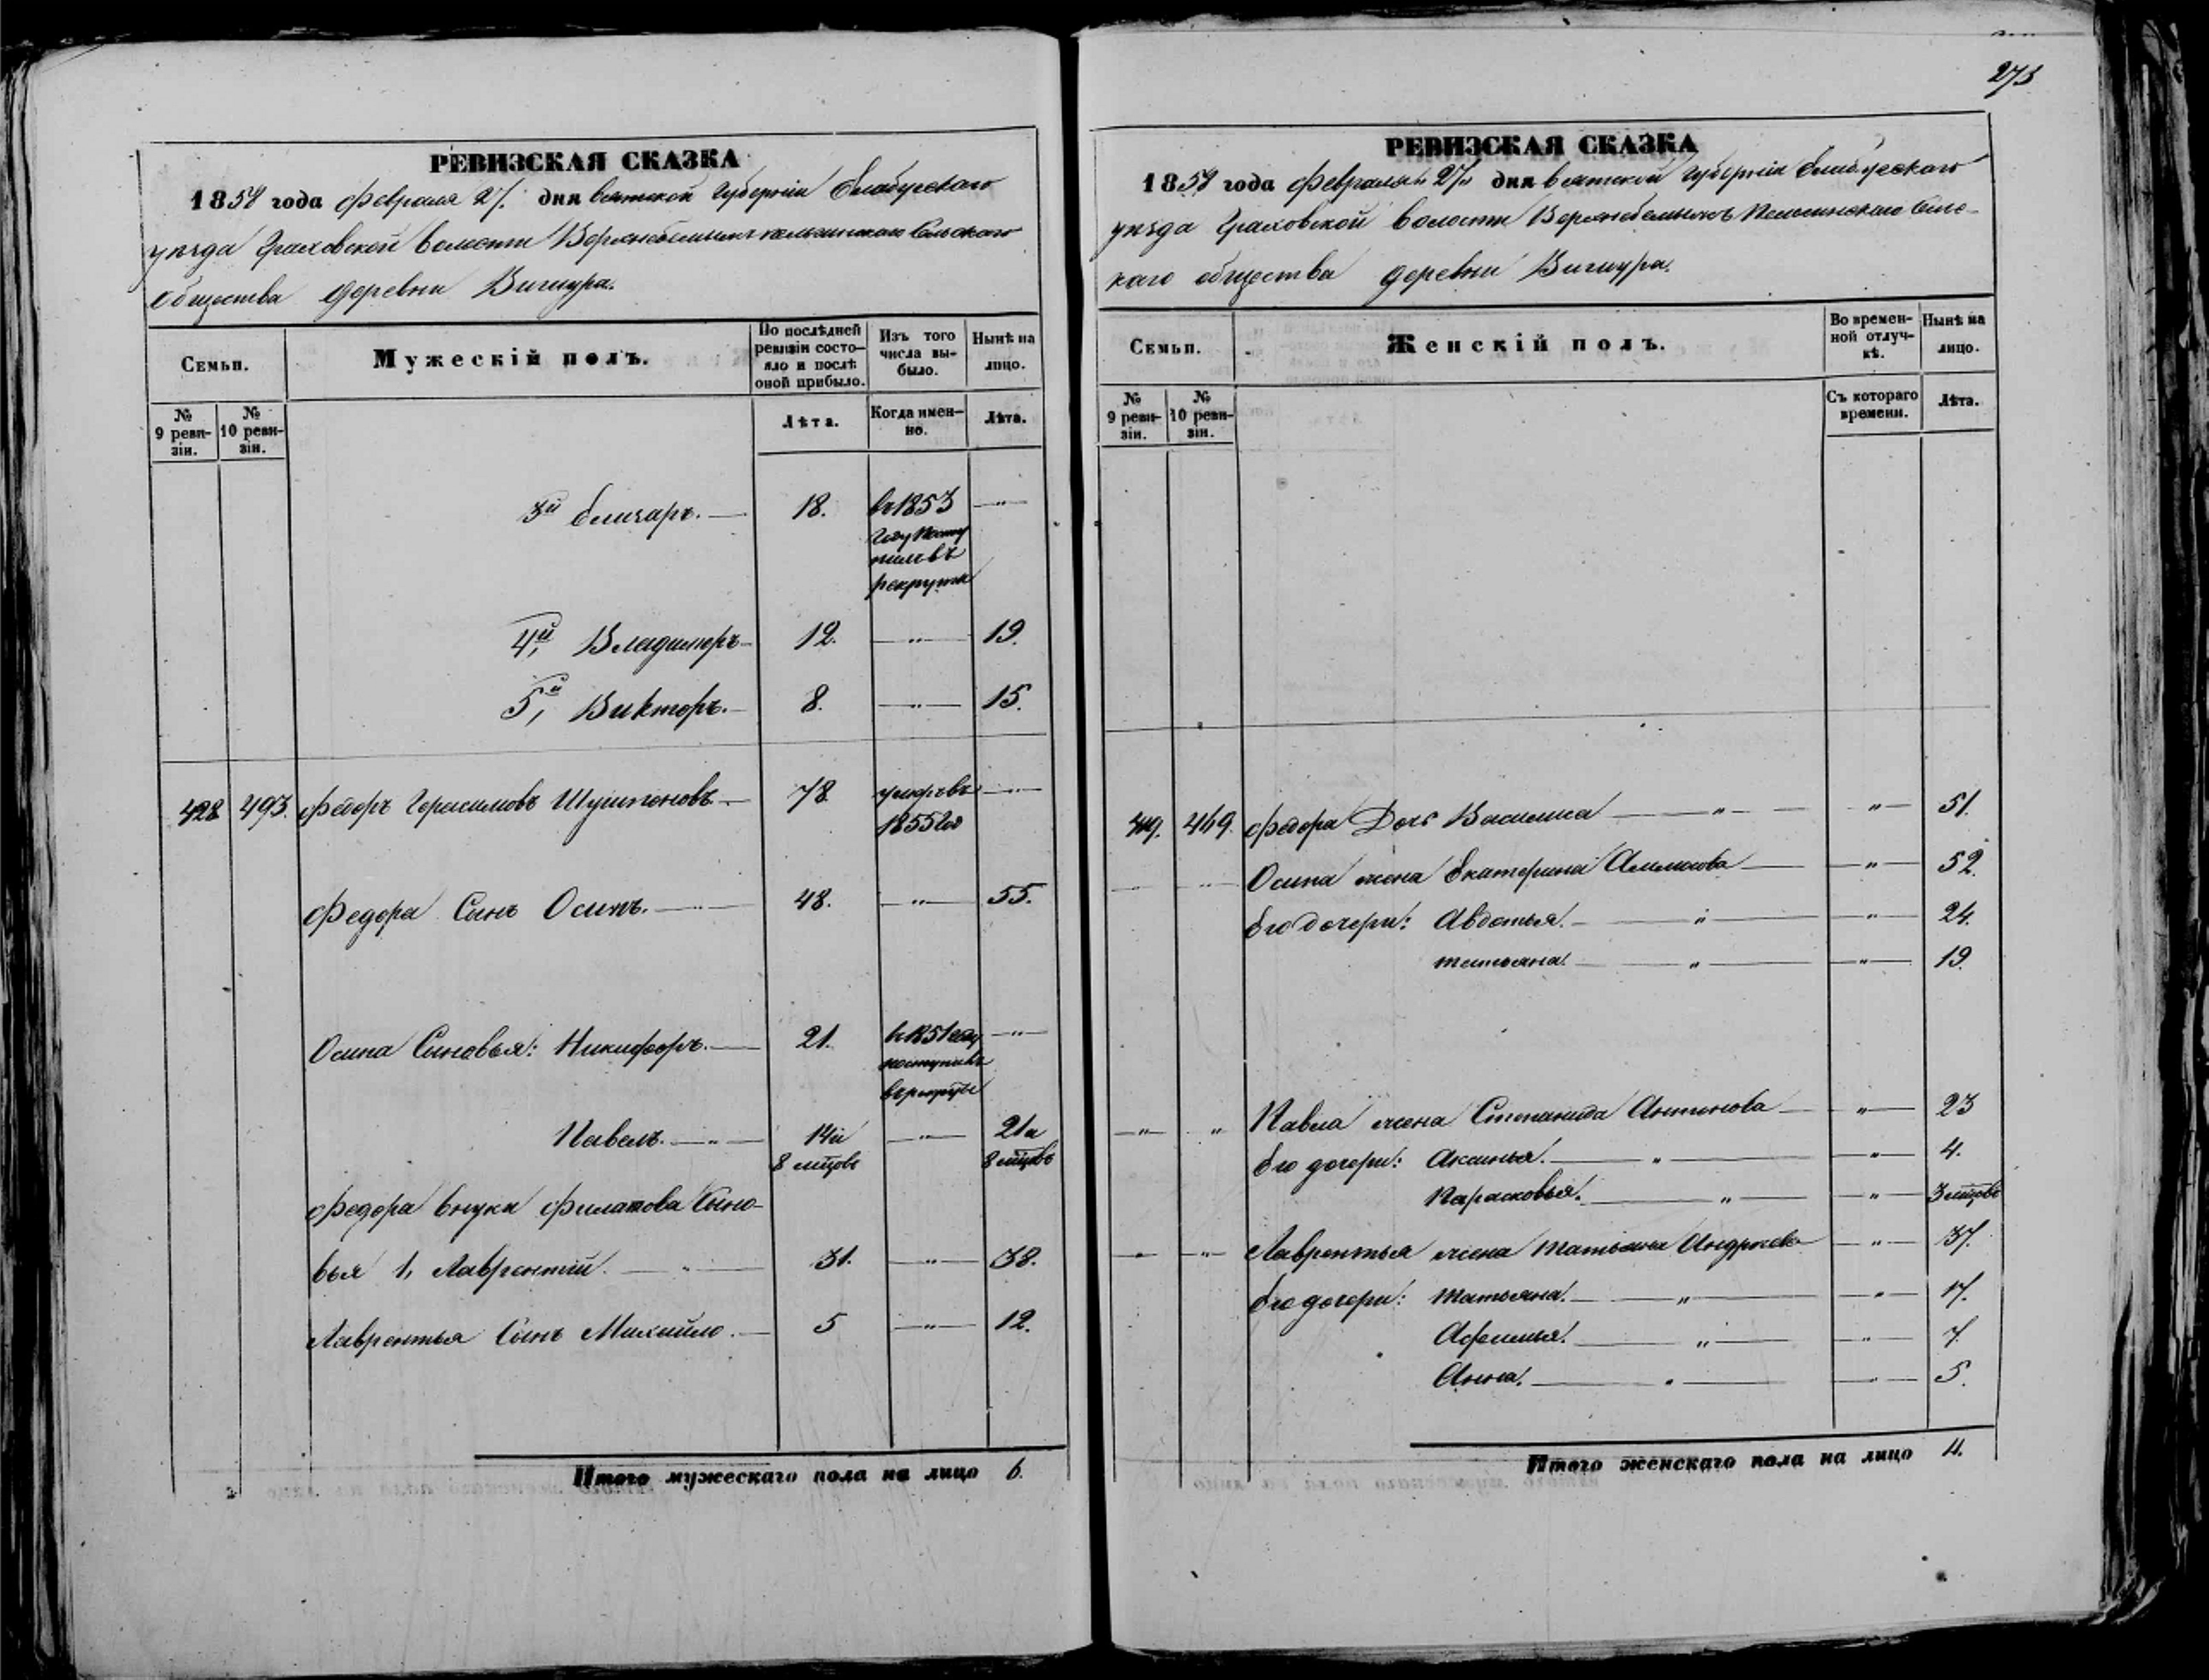 273
РЕВИЗСКАЯ СКАЗКА
1858 года Февраля 27. дня Вятской Губерніи Елабужскаго
уѣзда Граховской волости Сельскаго
общества деревни Вишура.
Семьи.
Мужескій полъ.
По послѣдней ревизіи состояло и послѣ оной прибыло.
Изъ того числа выбыло.
Нынѣ на лицо.
№ 9 ревизіи.
№ 10 ревизіи.
Лѣта.
Когда именно.
Лѣта.
3й Елизаръ. 18. въ 1853 —"—
году посту
пилъ въ
рекруты
4й, Владимеръ 12. —"— 19.
5й, Викторъ. 8. —"— 15.
428 493. Федоръ Герасимовъ 78 умеръ въ —"—
1855 го
Федора Сынъ Осипъ. 48. —"— 55.
Осипа Сыновья: Никифоръ. 21. въ 1851 году —"—
поступилъ
в рекруты
Павелъ. —"— 14 и —"— 21 и
8 мцовъ 8 мцовъ
Федора внуки Филатова Сыно-
вья 1, Лаврентій. 31. —"— 38.
Лаврентья Сынъ Михайло. 5 —"— 12.
Итого мужескаго пола на лицо 6.
РЕВИЗСКАЯ СКАЗКА
1858 года Февраля „27„ дня Вятской Губерніи Елабужскаго
уѣзда Граховской волости Сельс-
каго общества деревни Вишура.
Семьи.
Женскій полъ.
Во временной отлучкѣ.
Нынѣ на лицо.
№ 9 ревизіи.
№ 10 ревизіи.
Съ котораго времени.
Лѣта.
469. Федора Дочь Василиса —"— —"— 51.
Осипа жена Екатерина —"— 52.
Его дочери: Авдотья. —"— —"— 24.
Татьяна. —"— —"— 19.
—"— " Павла жена Степанида Антонова —"— 23
Его дочери: Аксинья. —"— —"— 4.
Парасковья. —"— —"— 3 мцовъ
—"— —"— Лаврентья жена Татьяна Андреева —"— 37.
Его дочери: Татьяна. —"— —"— 17.
Афимья. —"— —"— 7.
Анна. —"— —"— 5.
Итого женскаго пола на лицо 11.